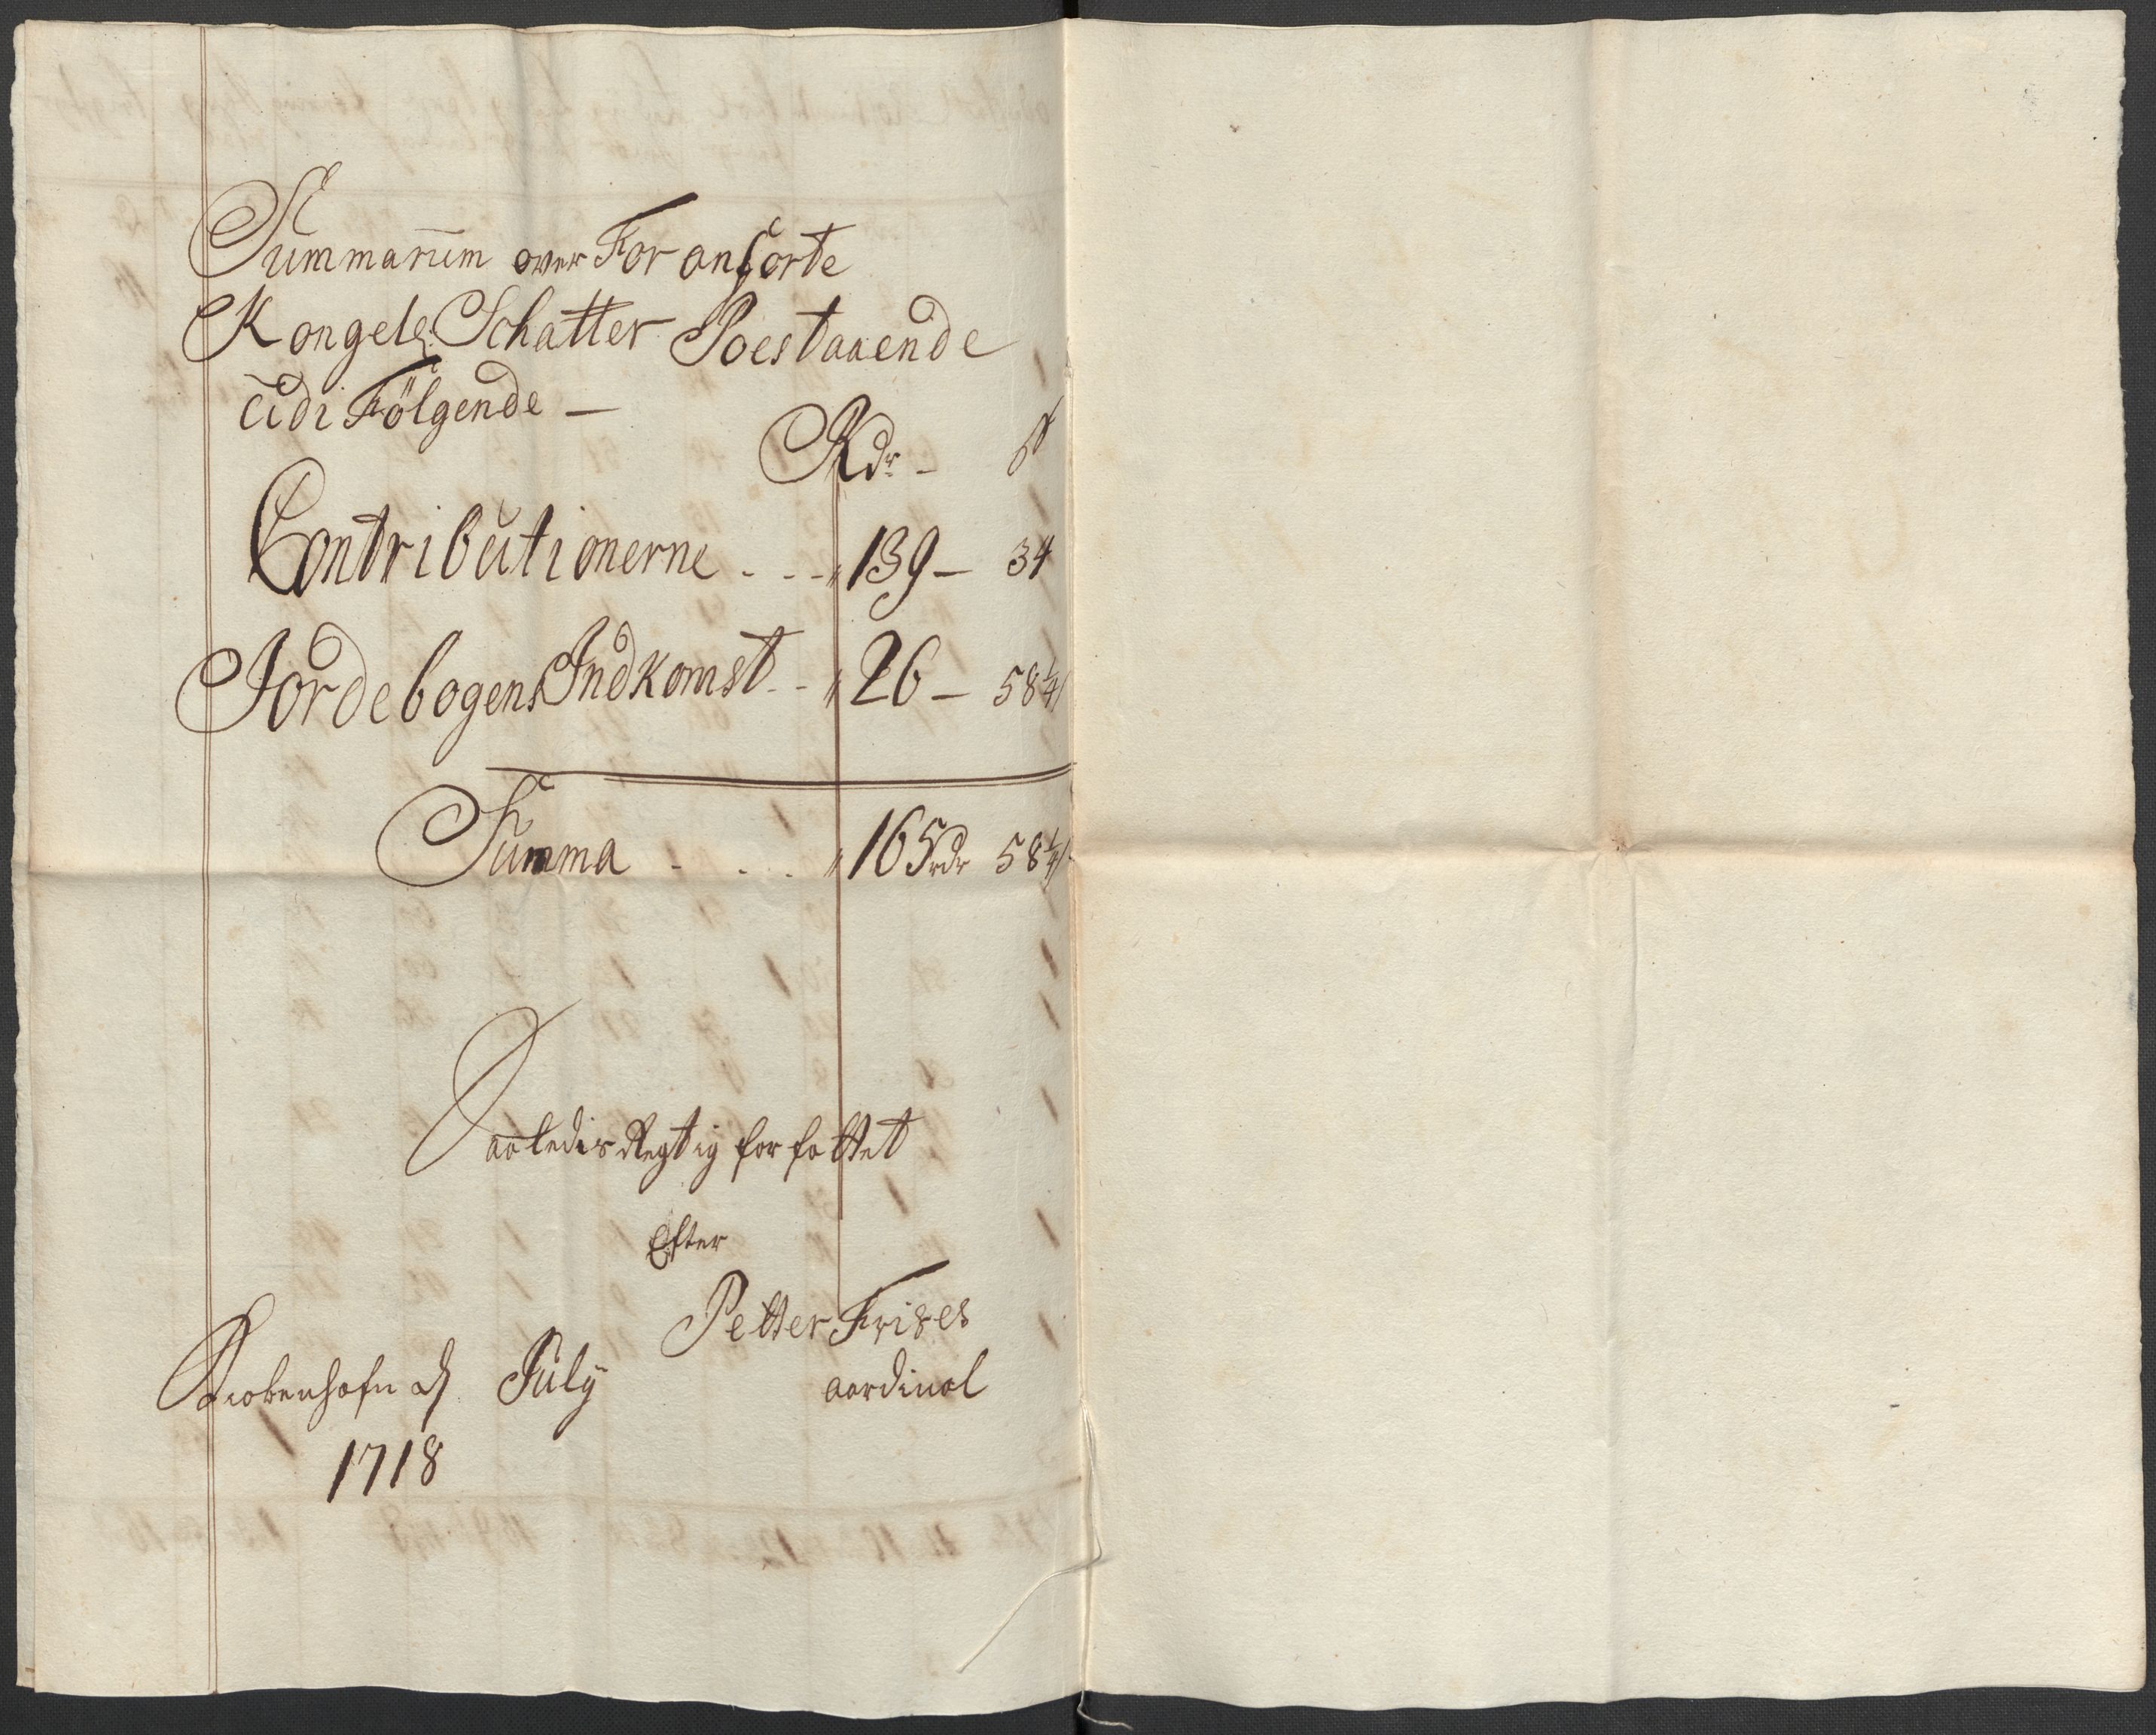 Summarum over For anførte
Kongele Schatter Poestaaende
udi Fölgende —
Rdr — ß
Contributionerne . . . 139 — 34
Jordebogens Indkomst . . 26 — 58¼
Summa . . . . 165 rdr 58¼
Saaledis Regtig forfattet
Efter
Petter Frises
Kiobenhafn d July
1718